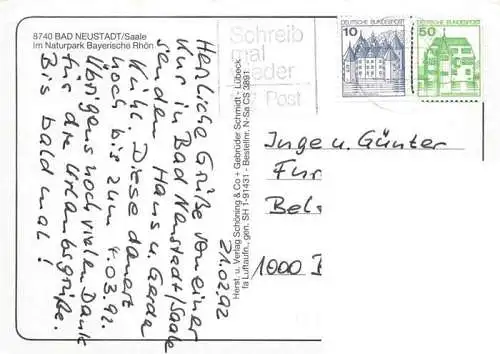 8740 BAD NEUSTADT/Saale
Im Naturpark Bayerische Rhön
Schreib
mal
Post
10
DEUTSCHE BUNDESPOST
50
DEUTSCHE BUNDESPOST
21.02.92
Herzliche Grüße von einer
Kur in Bad Neustadt/Saale
senden Hans u. Gerda
Kühl. Diese dauert
noch bis zum 4.03.92.
Übrigens noch vielen Dank
für die Urlaubsgrüße.
Bis bald mal!
Herst. u. Verlag Schöning & Co + Gebrüder Schmidt - Lübeck
fa Luftaufn., gen. SH 1-91431 - Bestellnr. N-Sa CS 3891
Inge u. Günter
Fur
Bels
1000